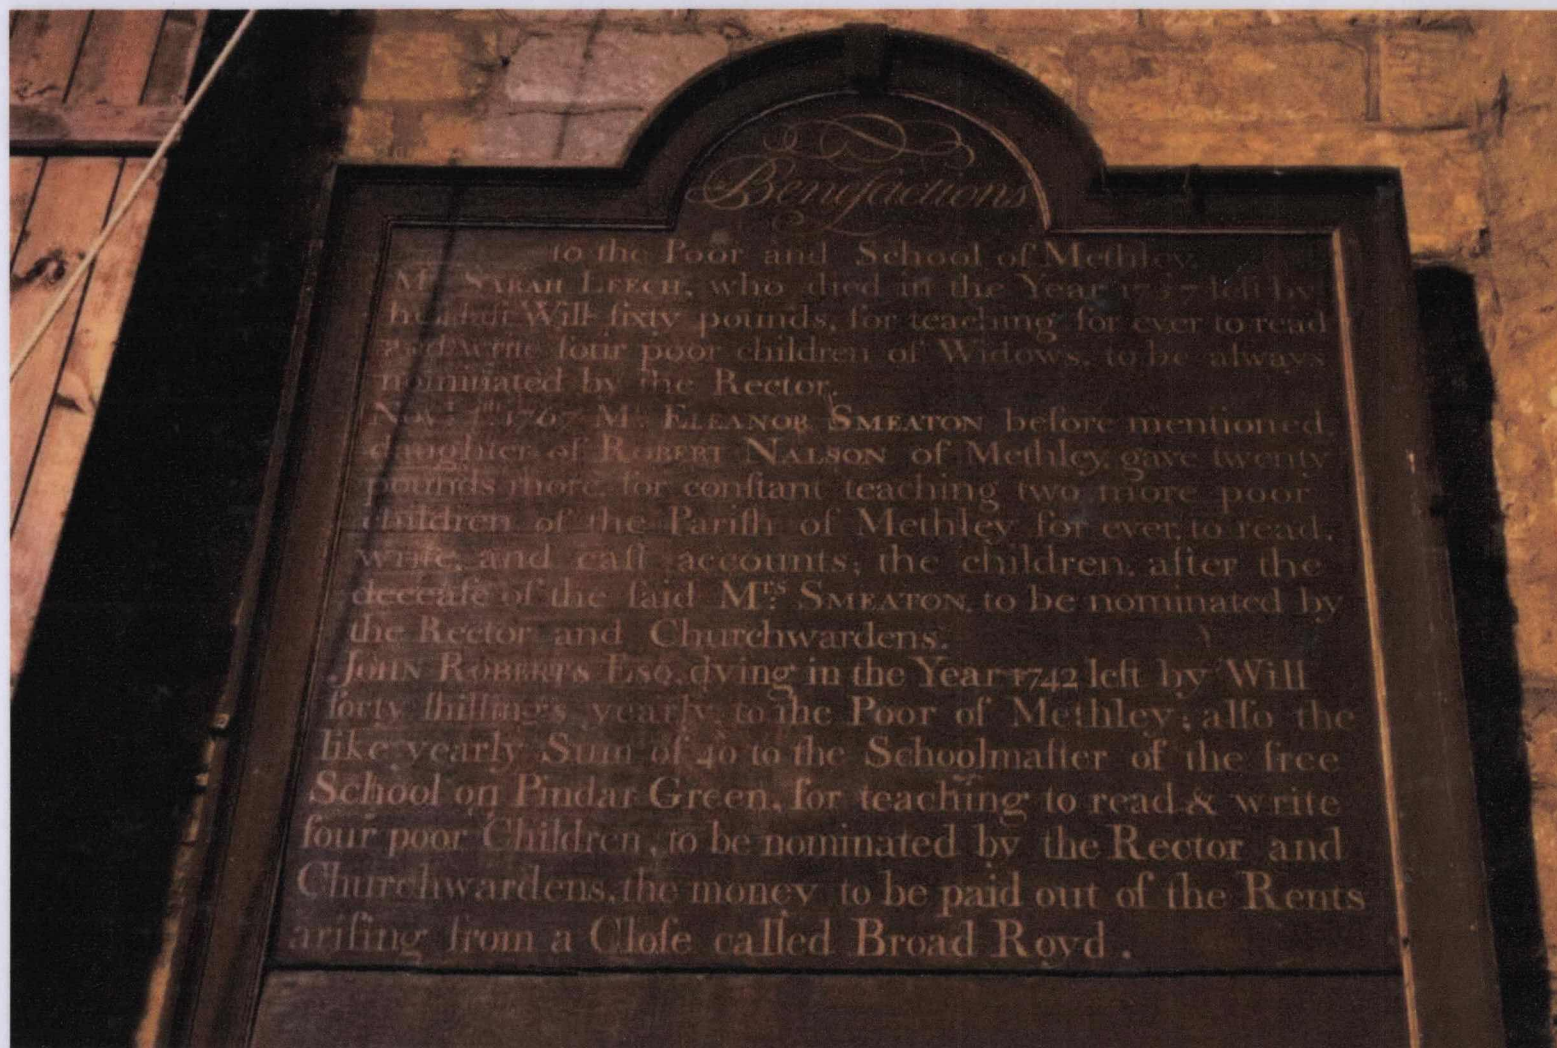 Benefactions
to the Poor and School of Methley.
Mrs SARAH LEECH, who died in the Year left by
her last Will ſixty pounds, for teaching for ever to read
and write four poor children of Widows, to be always
nominated by the Rector.
1767 Mrs ELEANOR SMEATON before mentioned,
daughter of ROBERT NALSON of Methley, gave twenty
pounds more, for conſtant teaching two more poor
children of the Pariſh of Methley for ever, to read,
write, and caſt accounts; the children, after the
deceaſe of the ſaid Mrs SMEATON, to be nominated by
the Rector and Churchwardens.
JOHN ROBERTS ESQ. dying in the Year 1742 left by Will
forty ſhillings yearly, to the Poor of Methley; alſo the
like yearly Sum of 40 to the Schoolmaſter of the free
School on Pindar Green, for teaching to read & write
four poor Children, to be nominated by the Rector and
Churchwardens, the money to be paid out of the Rents
ariſing from a Cloſe called Broad Royd.